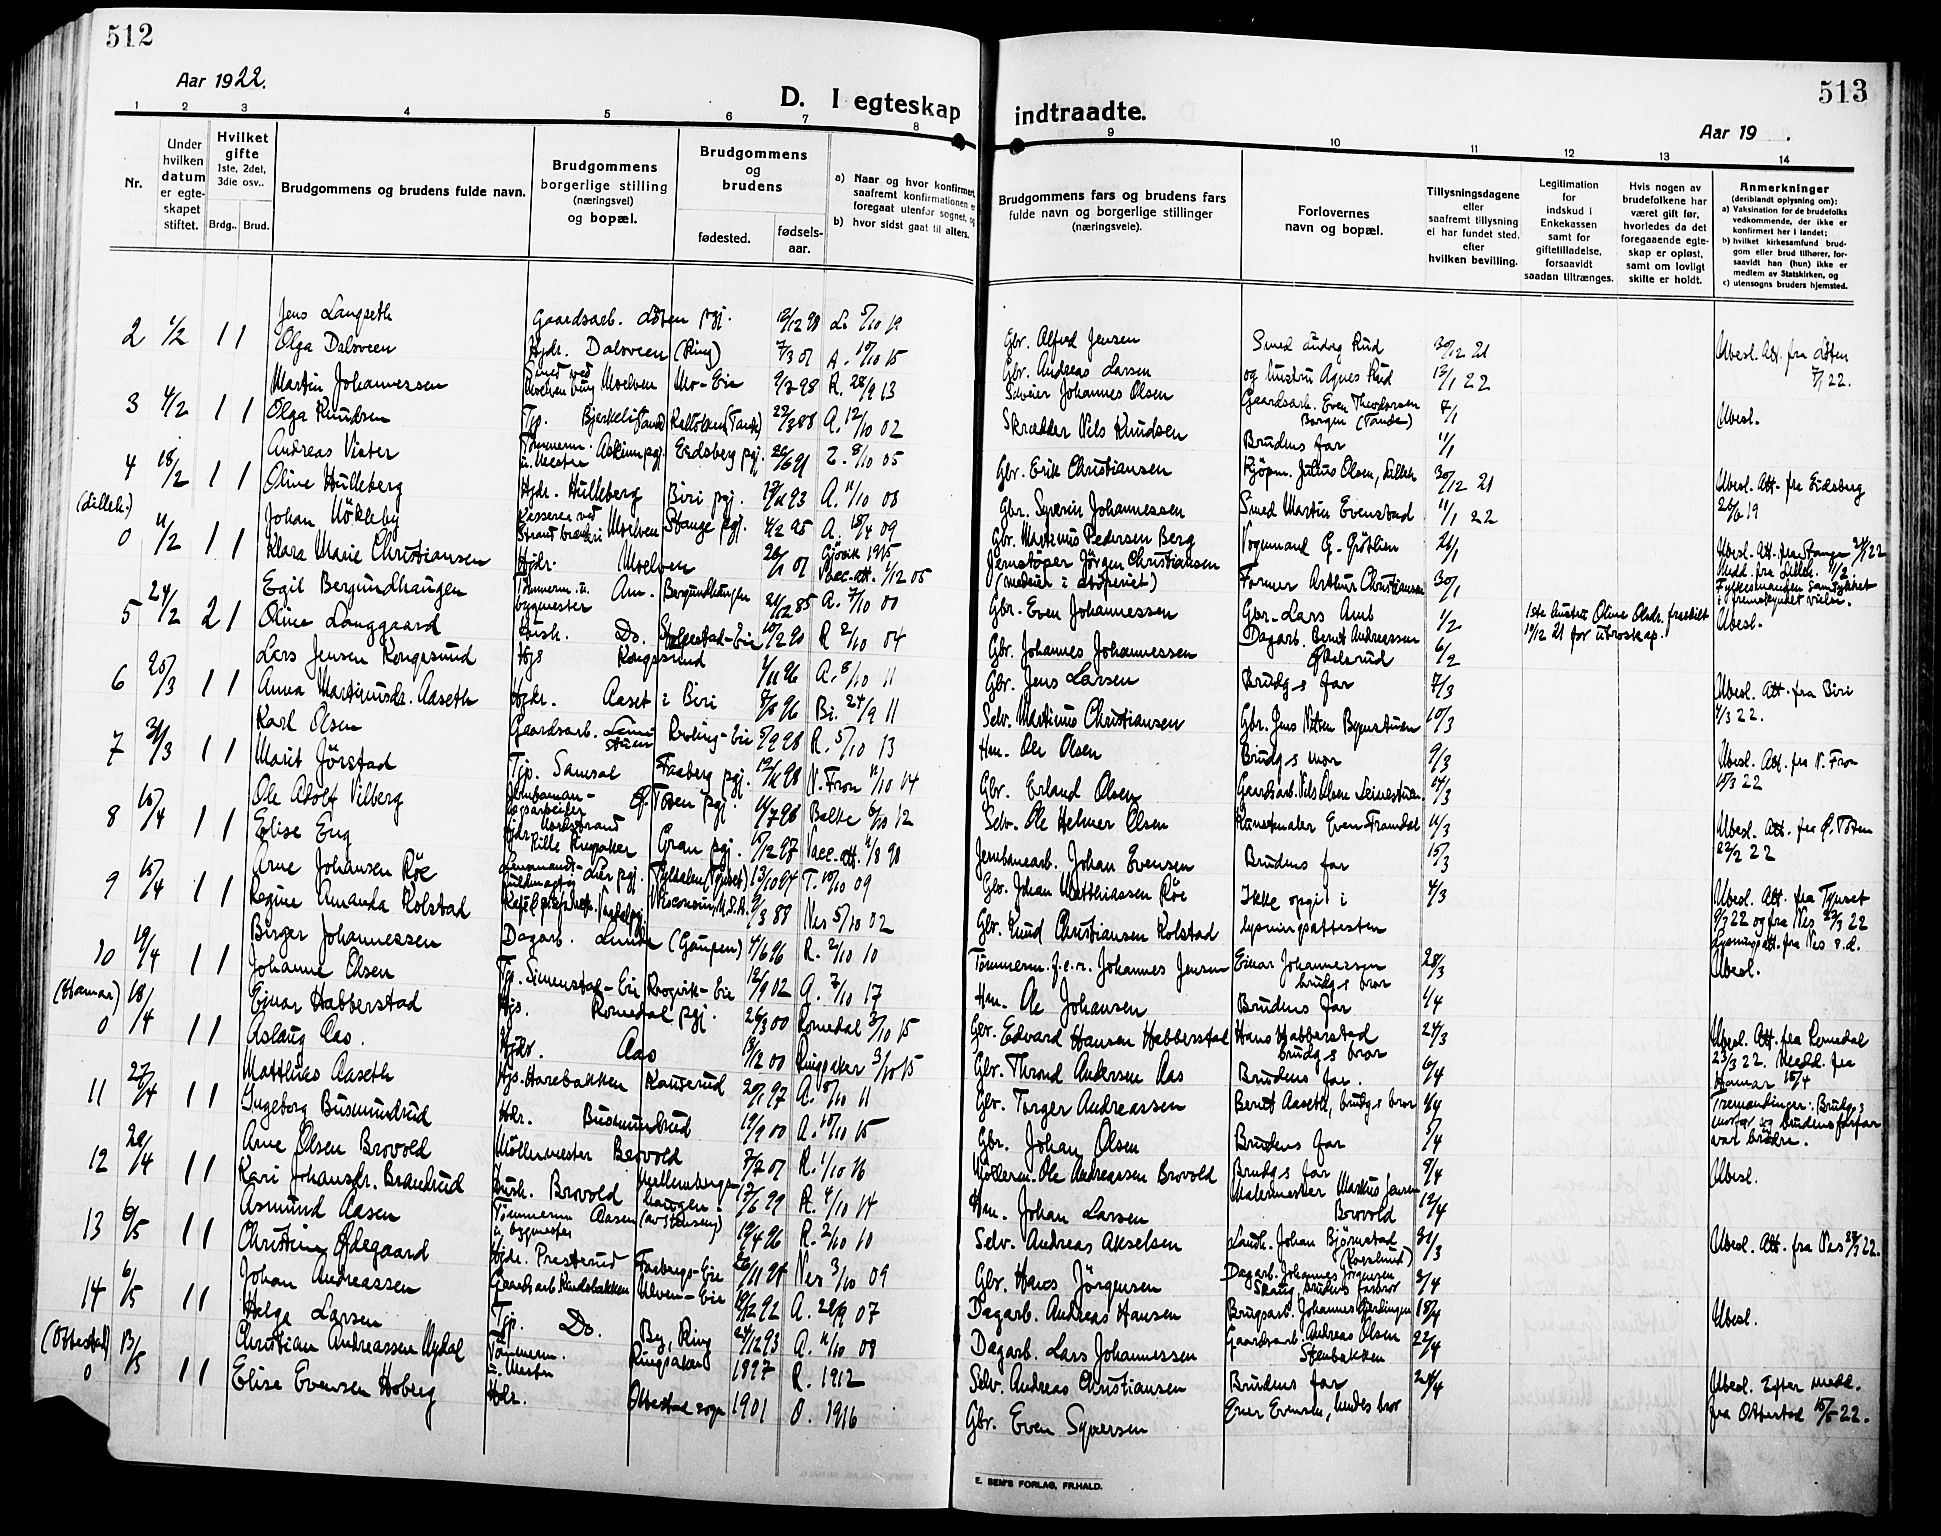 512
Aar 1922.
D. I egteskap
1 2 3 4 5 6 7 8
Nr.
Under hvilken datum er egte-skapet stiftet.
Hvilket gifte 1ste, 2det, 3die osv..
Brdg.. Brud.
Brudgommens og brudens fulde navn.
Brudgommens borgerlige stilling (næringsvei) og bopæl.
Brudgommens og brudens
fødested. fødsels-aar.
a) Naar og hvor konfirmert, saafremt konfirmationen er foregaat utenfor sognet, og
b) hvor sidst gaat til alters.
Jens Langseth Gaardsarb. Löten pgj. 12/12 98 L. 5/10 19
2 1/2 1 1 Olga Dalsveen Hjdr. Dalsveen (Ring) 7/3 01 A. 10/10 15
Martin Johannessen Smed ved Moelven brug Moelven Mo-Eie 9/7 98 R. 28/9 13
3 4/2 1 1 Olga Knudsen Tjp. 22/3 88 A. 12/10 02
Andreas Vister Tömmerm. u. Mester Askim pgj. Eidsberg pgj. 22/6 91 8/10 05
4 18/2 1 1 Oline Hulleberg Hjdr. Hulleberg Biri pgj. A. 11/10 08
(Lilleh.) Johan Hökleby Kasserer ved Moelven Stange pgj. 4/2 95 A. 18/4 09
0 11/2 1 1 Klara Marie Christiansen Hjdr. Moelven Gjövik 1915 Vacc. att. 1/12 05
Egil Bergundhaugen Tömmerm. u. bygmester Am. Bergundhaugen 21/12 85 A. 7/10 00
5 24/2 2 1 Oline Langgaard Do. 10/2 90 R 2/10 04
Lars Jensen Kongssund Hjs Kongssund 1/11 96 A. 8/10 11
6 25/3 1 1 Anna Martinusdr. Aaseth Hjdr. Aaset i Biri 8/5 96 Bi. 24/9 11
Karl Olsen Gaardsarb. 5/9 98 R. 5/10 13
7 31/3 1 1 Marit Jörstad Tjp. Samsal Faaberg pgj. 12/11 98 N. Fron 11/10 14
Ole Adolf Vilberg Ø. Toten pgj. 11/7 98 Balke 6/10 12
8 15/4 1 1 Eolise Eng Lille Ringsaker Gran pgj. 15/12 97 Vacc. att. 11/8 98
Arne Johansen Röe Tyldalen (Tynset) 13/10 84 T. 10/10 09
9 15/4 1 1 Regine Amanda Kolstad Wisconsin, U.S.A. 9/3 88 Nes 5/10 02
Birger Johannessen Dagarb. Lunde (Gaupen) 4/6 96 R. 2/10 10
10 19/4 1 1 Johanne Olsen Tjp. Simenstad-Eie Kroqvik-Eie 12/9 02 A. 7/10 17
(Hamar) Einar Habberstad Hjs. Romedal pgj. 26/3 00 Romedal 3/10 15
0 18/4 1 1 Aslaug Aas. Hjdr. Aas 13/12 00 Ringsaker 3/10 15
Matthias Aaseth Hjs. Harebakken 20/1 97 A. 8/10 11
11 27/4 1 1 Ingeborg Busmundrud Hdr. Busmundrud 19/9 00 A. 10/10 15
Arne Olsen Brovold Möllermester Brovold 7/7 01 R. 1/10 16
12 29/4 1 1 Kari Johansdr. Brandrud Brovold Mellembergs-haugen 17/6 99 R. 4/10 14
Asmund Aasen Tömmerm u. bygmester Aasen 19/4 96 R. 2/10 10
13 6/5 1 1 Christine Ødegaard Hjdr. Presterud Faabergs-Eie 26/11 94 Nes 3/10 09
Johan Andreassen Gaardsarb Ulven-Eie 19/12 92 A. 29/9 07
14 6/5 1 1 Helga Larsen Tjp. Do. By, Ring 24/12 93 A. 11/10 08
(Ottestad) Christian Andreassen Mydal Tömmerm. u. Mester Ringsaker 1897 R. 1912
0 13/5 1 1 Elise Evensen Hoberg Hdr. Ottestad sogn 1901 O. 1916
513
indtraadte.
Aar 19 .
9 10 11 12 13 14
Brudgommens fars og brudens fars fulde navn og borgerlige stillinger (næringsveie).
Forlovernes navn og bopæl.
Tillysningsdagene eller saafremt tillysning ei har fundet sted, efter hvilken bevilling.
Legitimation for indskud i Enkekassen samt for giftetilladelse, forsaavidt saadan tiltrænges.
Hvis nogen av brudefolkene har været gift før, hvorledes da det foregaaende egte-skap er opløst, samt om lovligt skifte er holdt.
Anmerkninger (deriblandt oplysning om):
a) Vaksination for de brudefolks vedkommende, der ikke er konfirmert her i landet;
b) hvilket kirkesamfund brud-gom eller brud tilhører, for-saavidt han (hun) ikke er medlem av Statskirken, og
c) utensogns bruders hjemsted.
Gbr. Alfred Jensen Smed Rud 30/12 21 Ubesl. Att. fra Löten
Gbr. Andreas Larsen og hustru Agnes Rud 13/1 22 7/1 22.
Selveier Johannes Olsen Gaardsarb. Even Theodorsen Borgen (Tande) 7/1 Ubesl.
Skrædder Nils Knudsen Brudens far 11/1
Gbr. Erik Christiansen Kjöpm. Julius Olsen, Lilleh. 30/12 21 Ubesl. Att. fra Eidsberg
Gbr. Syverin Johannessen Smed Martin Evenstad 11/1 22
Gbr. Martinus Pedersen Berg Vognmand G. Gröblien 21/1 Ubesl. Att. fra Stange 24/1 22
Jernstöper Jörgen Christiansen Former Arthur Christiansen 30/1 Medd. fra Lilleh. 11/2
Gbr. Even Johannessen Gbr. Lars Amb 1/2 1ste hustru Oline Olsdr. fraskilt 19/12 21 for utroskap. Ubesl.
Gbr. Johannes Johannessen Dagarb. Bernt Andreassen 6/2
Gbr. Jens Larsen Brudg-s far 7/3 Ubesl. Att. fra Biri
Selv. Martinus Christiansen Gbr. Jens Nilsen 10/3 4/3 22.
Hm. Ole Olsen Brudg-s mor 9/3 Ubesl. Att. fra N. Fron
Gbr. Erland Olsen Gaardsarb. Nils Olsen 14/3 15/3 22
Selv. Ole Helmer Olsen Kunstmaler Even Framdal 11/3 Ubesl. Att. fra Ø. Toten
Jernbanearb. Johan Evensen Brudens far 15/3 22/2 22
Gbr. Johan Matthiassen Röe Ikke opgit i 4/3 Ubesl. Att. fra Tynset
Gbr. Knud Christiansen Kolstad lysningsattesten 9/3 22 og fra Nes 27/3 22
Lysningsatt. fra Nes s.d.
Tömmerm. f.e.r. Johannes Jensen Einar Johannessen brudg-s bror 28/3 Ubesl.
Hm. Ole Johansen Brudens far 1/4
Gbr. Edvard Hansen Habberstad Hans Habberstad brudg-s bror 24/3 Ubesl. Att. fra Romedal
Gbr. Thrond Andersen Aas Brudens far. 6/4 23/3 22. Medd. fra Hamar 18/4
Gbr. Torger Andreassen Bernt Aaseth, brudg-s bror 4/4 Tremendinger: Brudg-s morfar og brudens farfar var brödre.
Gbr. Johan Olsen Brudens far 5/4
Mölleren Ole Andreassen Brovold Brudg-s far 8/4 Ubesl.
Hm. Johan Larsen Malermester Markus Jensen Brovold 12/4
Selv. Andreas Akselsen Landh. Johan Björnstad 31/3 Ubesl. Att. fra Nes 28/3 22.
Gbr. Hans Jörgensen Dagarb. Johannes Jörgensen Skaug, brudens farbror 3/4
Dagarb. Andreas Hansen Brugsarb. Johannes 18/4 Ubesl.
Dagarb. Lars Johannessen Gaardsarb. Andreas Olsen Stenbakken 22/4
Selv. Andreas Christiansen Brudens far 28/4 Ubesl. Efter medd.
Gbr. Even Syversen Evensen, hendes bror fra Ottestad 15/5 22.
E. SEM'S FORLAG, FR.HALD.